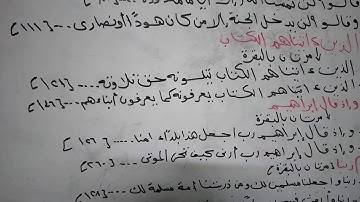 وقالوا لن يدخل الجنة إلا من كان هودًا أو نصارى .... [١١١]
الذين ءاتيناهم الكتاب
مرتان بالبقرة
- الذين ءاتيناهم الكتاب يتلونه حق تلاوته .... [١٢١]
- الذين ءاتيناهم الكتاب يعرفونه كما يعرفون أبناءهم ... [١٤٦]
وإذ قال إبراهيم
مرتان بالبقرة
- وإذ قال إبراهيم رب اجعل هذا بلدًا ءامنا .... [١٢٦]
- وإذ قال إبراهيم رب أرنى كيف تحى الموتى ... [٢٦٠]
ربنا [مرتان بالبقرة]
ربنا واجعلنا مسلمين لك ومن ذريتنا أمة مسلمة لك .... [١٢٨]